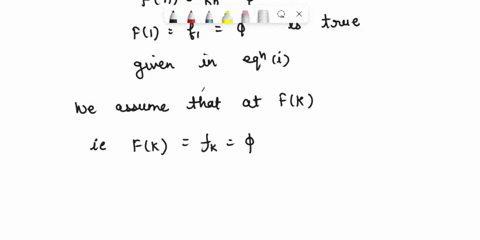 F(1) = f₁ = ϕ is true
given in eqⁿ (i)
We assume that at F(K)
ie F(K) = fₖ = ϕ